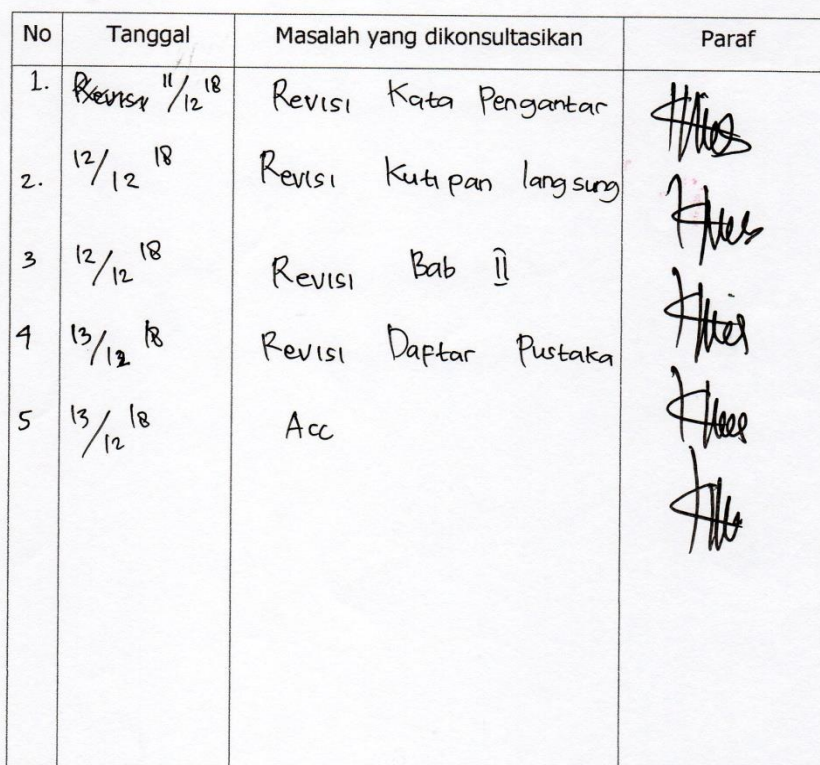 No Tanggal Masalah yang dikonsultasikan Paraf
1. Revisi 11/12 18 Revisi Kata Pengantar
2. 12/12 18 Revisi Kutipan langsung
3 12/12 18 Revisi Bab II
4 13/12 18 Revisi Daftar Pustaka
5 13/12 18 Acc